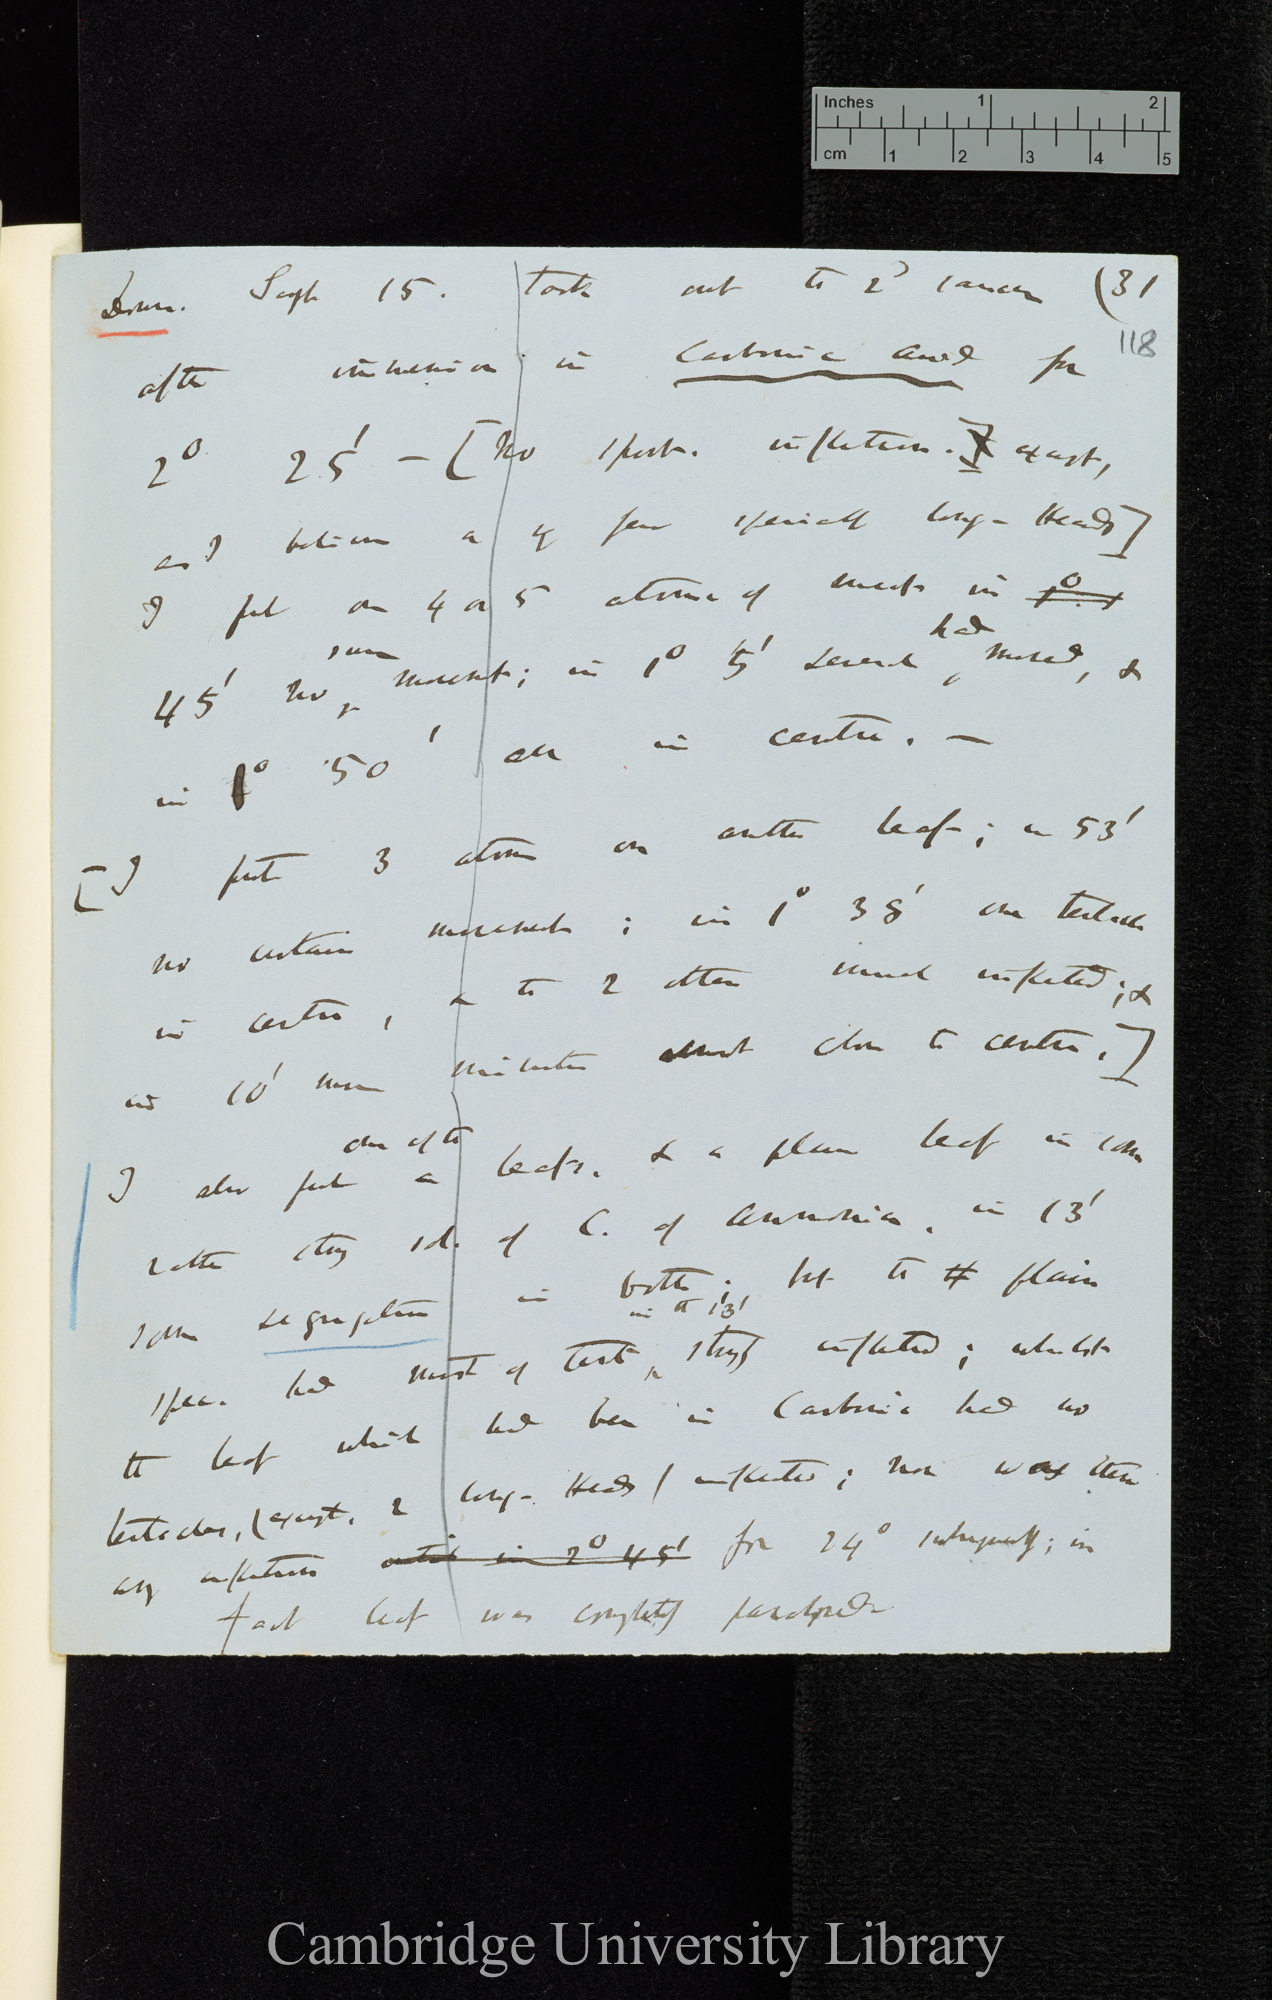 Inches 1 2
cm 1 2 3 4 5
Down. Sept 15. Took out the 2d leaves (31
118
after immersion in Carbonic acid for
2° 25' — [No spont. inflection.] except,
as I believe a few specially long-heads]
I put on 4 or 5 atoms of meat in 1°
45' no sure movement; in 1° 5' several had moved, &
in 1° 50' all in centre. —
[I put 3 atoms on another leaf; in 53'
no certain movement; in 1° 38' one tentacle
in centre, & the 2 others much inflected; &
in 10' more minutes almost close to centre.]
I also put one of the leafs. & a plain leaf in some
rather strong sol. of C. of Ammonia. in 13'
some segregation in both; but the plain
spec. had most of tent. in the 13' strongly inflected; whilst
the leaf which had been in Carbonic had no
tentacles, (except. 2 long-heads) inflected; nor was there
any inflection until in 2° 45' for 24° subsequently; in
fact leaf was completely paralysed
Cambridge University Library